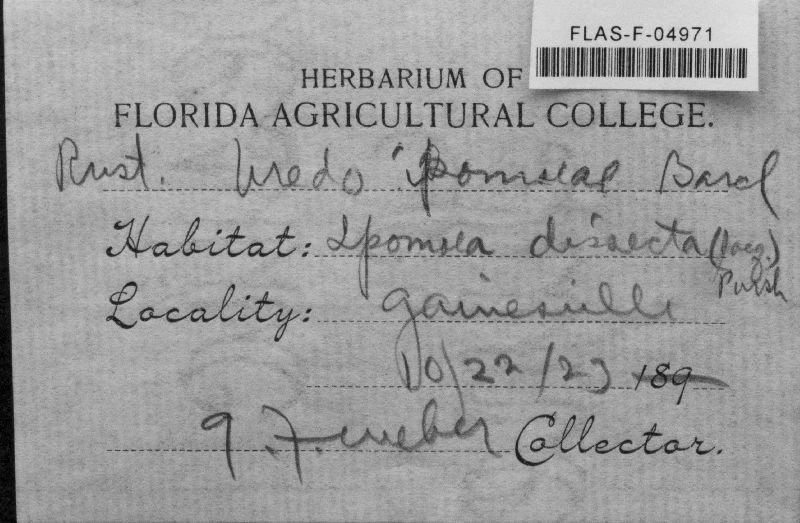 FLAS-F-04971
HERBARIUM OF
FLORIDA AGRICULTURAL COLLEGE.
Rust. Uredo Ipomoeae
Habitat: Ipomoea dissecta (Jacq.)
Pursh
Locality: Gainesville
10/22/23 189
G. F. Weber Collector.